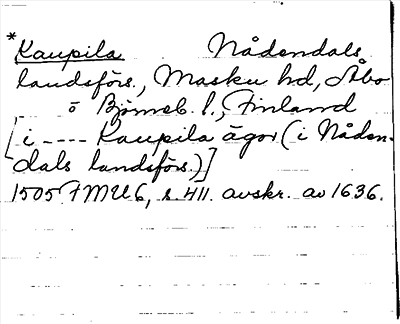 *Kaupila Nådendals
landsförs., Masku hd, Åbo
o Björneb. l., Finland
[i ---- Kaupila ägor (i Nåden-
dals landsförs.)]
1505 FMU 6, s. 411. avskr. av 1636.